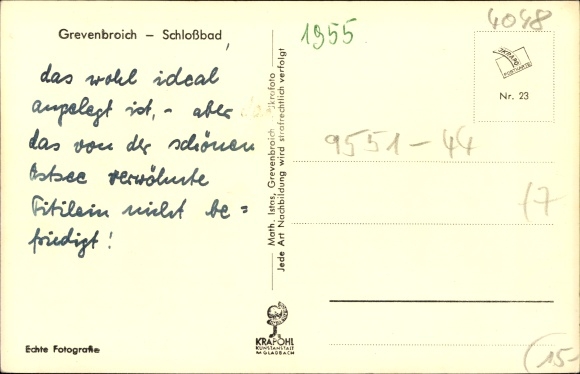 Grevenbroich – Schloßbad,
1955
4048
das wohl ideal
angelegt ist, - aber
das von der schönen
Ostsee verwöhnte
Titilein nicht be=
friedigt!
Math. Istas, Grevenbroich
Jede Art Nachbildung wird strafrechtlich verfolgt
POSTKARTE
Nr. 23
9551-44
17
KRAPOHL
KUNSTANSTALT
M.GLADBACH
Echte Fotografie
(15-